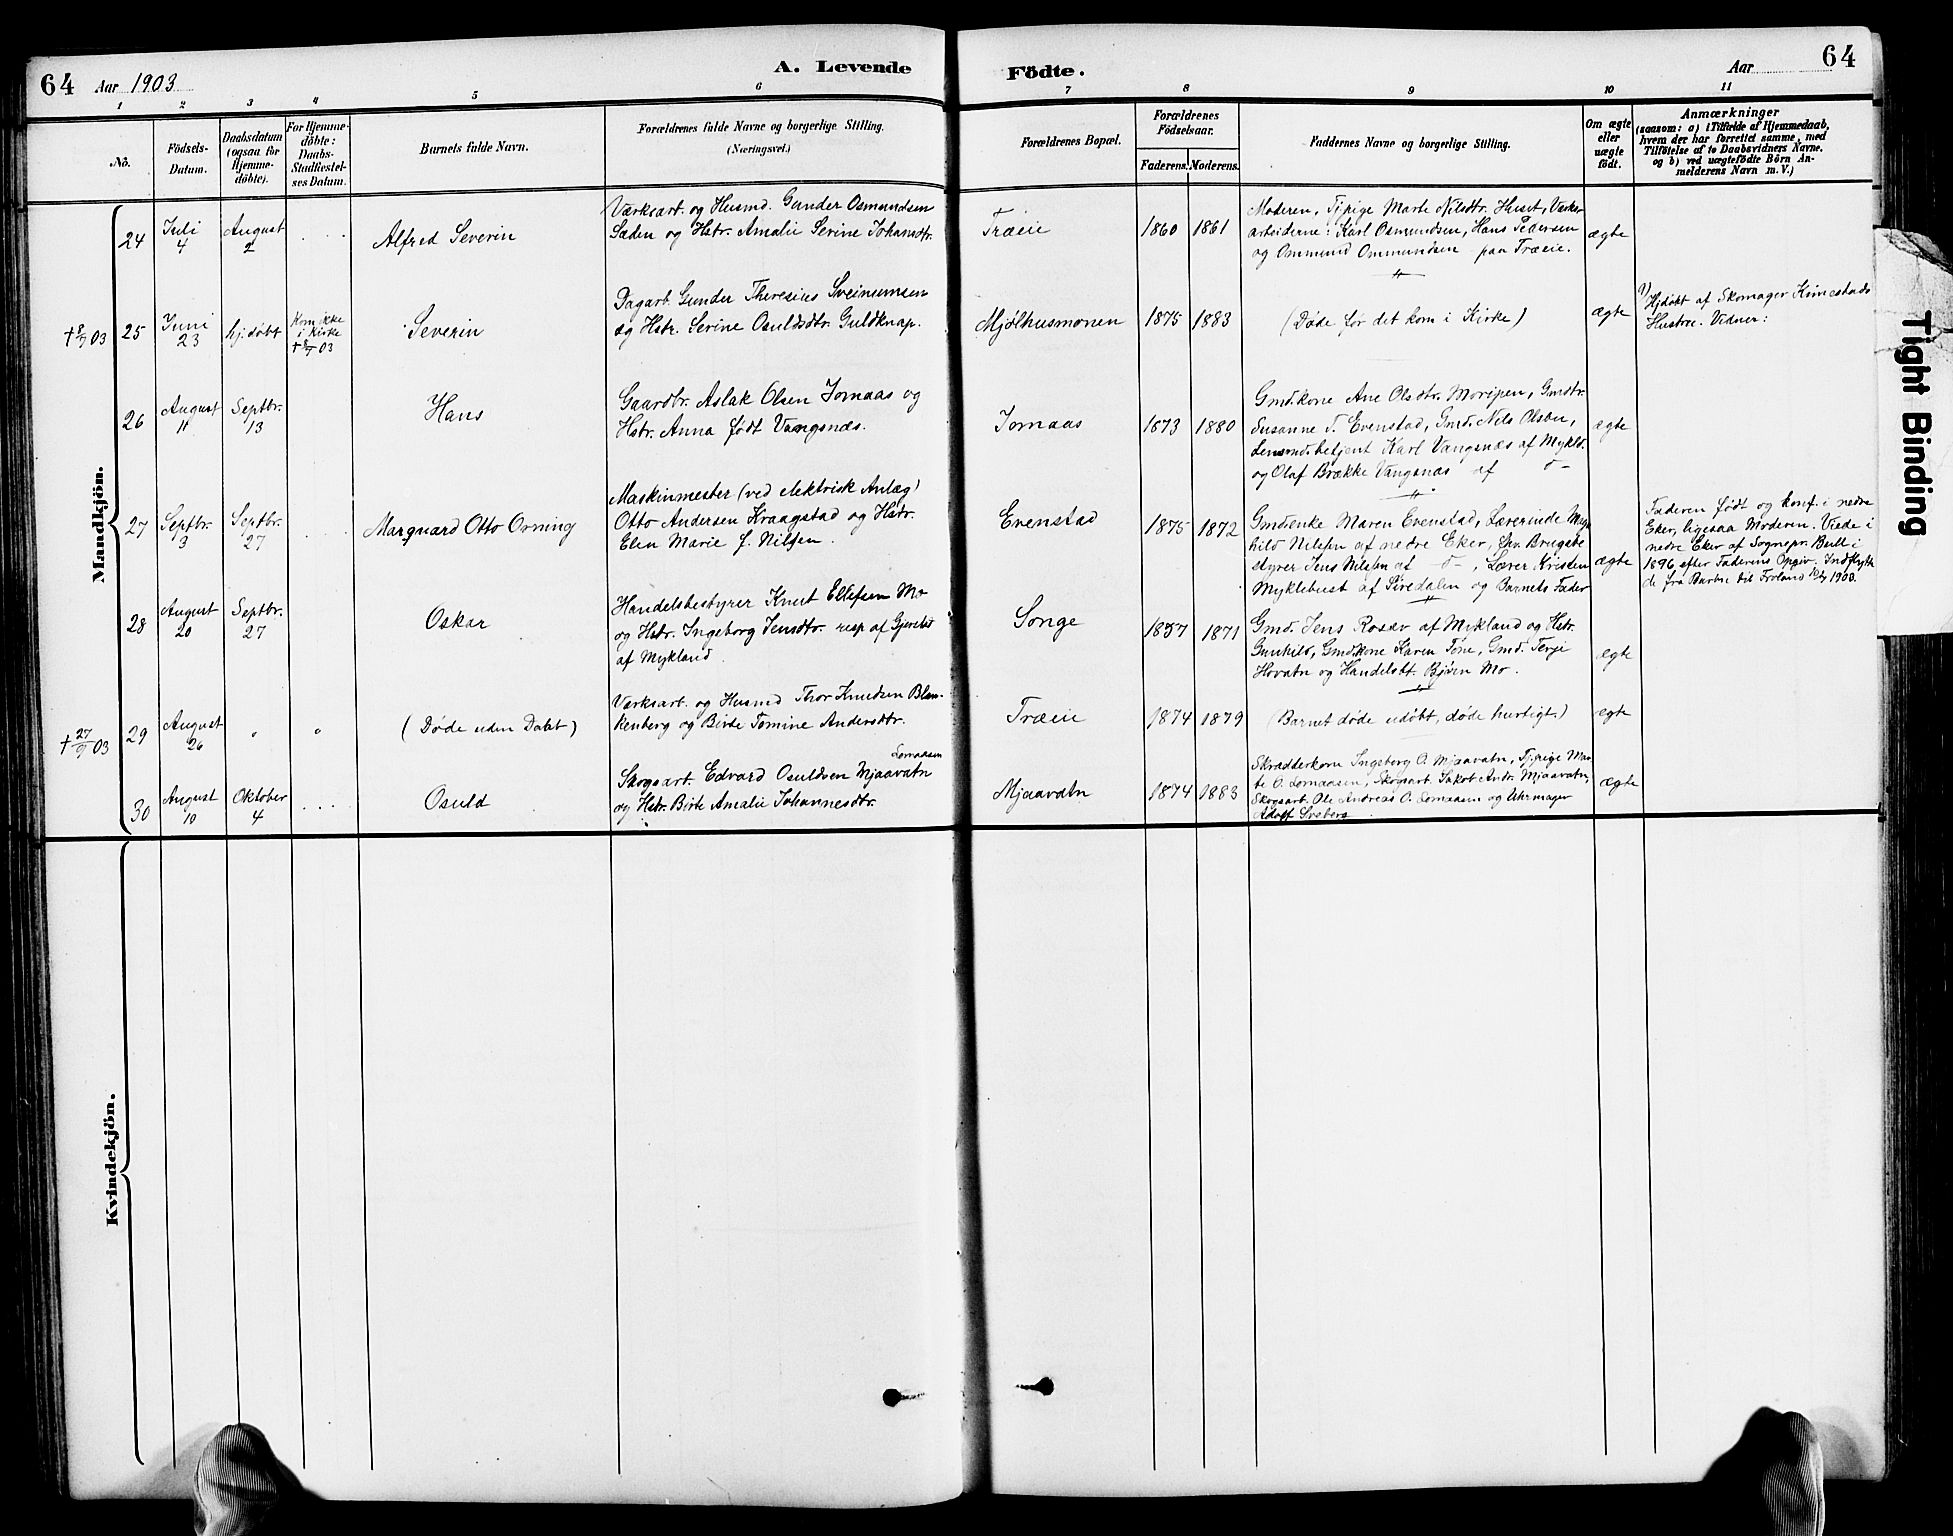 64 Aar 1903
A. Levende
Födte.
Aar
64
1 2 3 4 5 6 7 8 9 10 11
No.
Födsels-
Datum.
Daabsdatum
(ogsaa för
Hjemme-
döbte).
For Hjemme-
döbte:
Daabs-
Stadfæstel-
ses Datum.
Barnets fulde Navn.
Forældrenes fulde Navne og borgerlige Stilling.
(Næringsvei.)
Forældrenes Bopæl.
Forældrenes
Födselsaar.
Faderens. Moderens.
Faddernes Navne og borgerlige Stilling.
Om ægte
eller
uægte
födt.
Anmærkninger
(saasom: a) i Tilfælde af Hjemmedaab,
hvem der har forrettet samme, med
Tilföielse af to Daabsvidners Navne.
og b) ved uægtefödte Börn An-
melderens Navn m. V.)
Mandkjön.
24
Juli
4
August
2
Alfred Severin
Værksarb. og Husmd. Gunder Osmundsen
Sæden og Hstr. Amalie Serine Johansdtr.
Træeie
1860 1861
Moderen, Tjpige Marte Nilsdtr. Huset, Værks-
arbeiderne: Karl Osmundsen, Hans Pedersen
og Ommund Ommundsen paa Træeie.
ægte
† 8/7 03
25
Juni
23
hj.døbt
Kom ikke
i Kirke
† 8/7 03
Severin
Dagarb. Gunder Theresius Sveinumsen
og Hstr. Serine Osuldsdtr. Guldknap.
Mjølhusmonen
1875 1883
(Døde før det kom i Kirke)
ægte
1) Hjdøbt af Skomager Kimestads
Hustru. Vidner:
26
August
11
Septbr.
13
Hans
Gaardbr. Aslak Olsen Jomaas og
Hstr. Anna født Vangsnæs.
Jomaas
1873 1880
Gmd.kone Ane Olsdtr. Moripen, Gmdtr.
Susanne T. Evenstad, Gmd. Nils Olsbu,
Lensmdsbetjent Karl Vangsnæs af Mykld.
og Olaf Brække Vangsnæs af
ægte
27
Septbr.
3
Septbr.
27
Marquard Otto Orning
Maskinmester (ved elektrisk Anlæg)
Otto Andersen Kraagstad og Hstr.
Elen Marie f. Nilsen.
Evenstad
1875 1872
Gmdenke Maren Evenstad, Lærerinde
hild Nilsen af nedre Eker, Brugsbe
styrer Jens Nilsen af , Lærer Kristen
Myklebust af Siredalen og Barnets Fader
ægte
Faderen født og konf. i nedre
Eker, ligesaa Moderen. Viede i
nedre Eker af Sognepr. Bull i
1896 efter Faderens Opgiv. Indflytte
de fra Barbu til Froland 1903.
28
August
20
Septbr.
27
Oskar
Handelsbestyrer Knut Ellefsen Mo
og Hstr. Ingeborg Jensdtr. resp af Gjerstad
af Mykland.
Songe
1857 1871
Gmd. Jens Rosæv af Mykland og Hstr.
Gunhild, Gmdkone Karen Tone, Gmd. Terje
Hovatn og Handelsbt. Bjørn Mo.
ægte
† 27/9 03
29
August
26
(Døde uden Daab)
Værksarb. og Husmd Thor Knudsen Blan-
kenberg og Birte Tomine Andersdtr.
Træeie
1874 1879
(Barnet døde udøbt, døde hurtigt.)
ægte
30
August
10
Oktober
4
Osuld
Lomaasen
Skogsarb. Edvard Osuldsen Mjaavatn
og Hstr. Birte Amalie Johannesdtr.
Mjaavatn
1874 1883
Skrædderkone Ingeborg O. Mjaavatn, Tjpige Mar-
te O. Lomaasen, Skogsarb. Jakob Andr. Mjaavatn,
Skogsarb. Ole Andreas O. Lomaasen og Uhrmager
Adolf
ægte
Kvindekjön.
Tight Binding